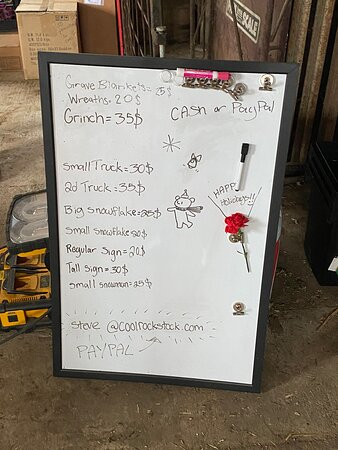 Grave Blankets = 25$
Wreaths = 20$
Grinch = 35$
CASH or PayPal
small Truck = 30$
2d Truck = 35$
Big snowflake = 25$
Small snowflake 20$
Regular Sign = 20$
Tall sign = 30$
Small snowman = 25$
HAPPY
Holidays!!
steve @coolrockstock.com
PAYPAL